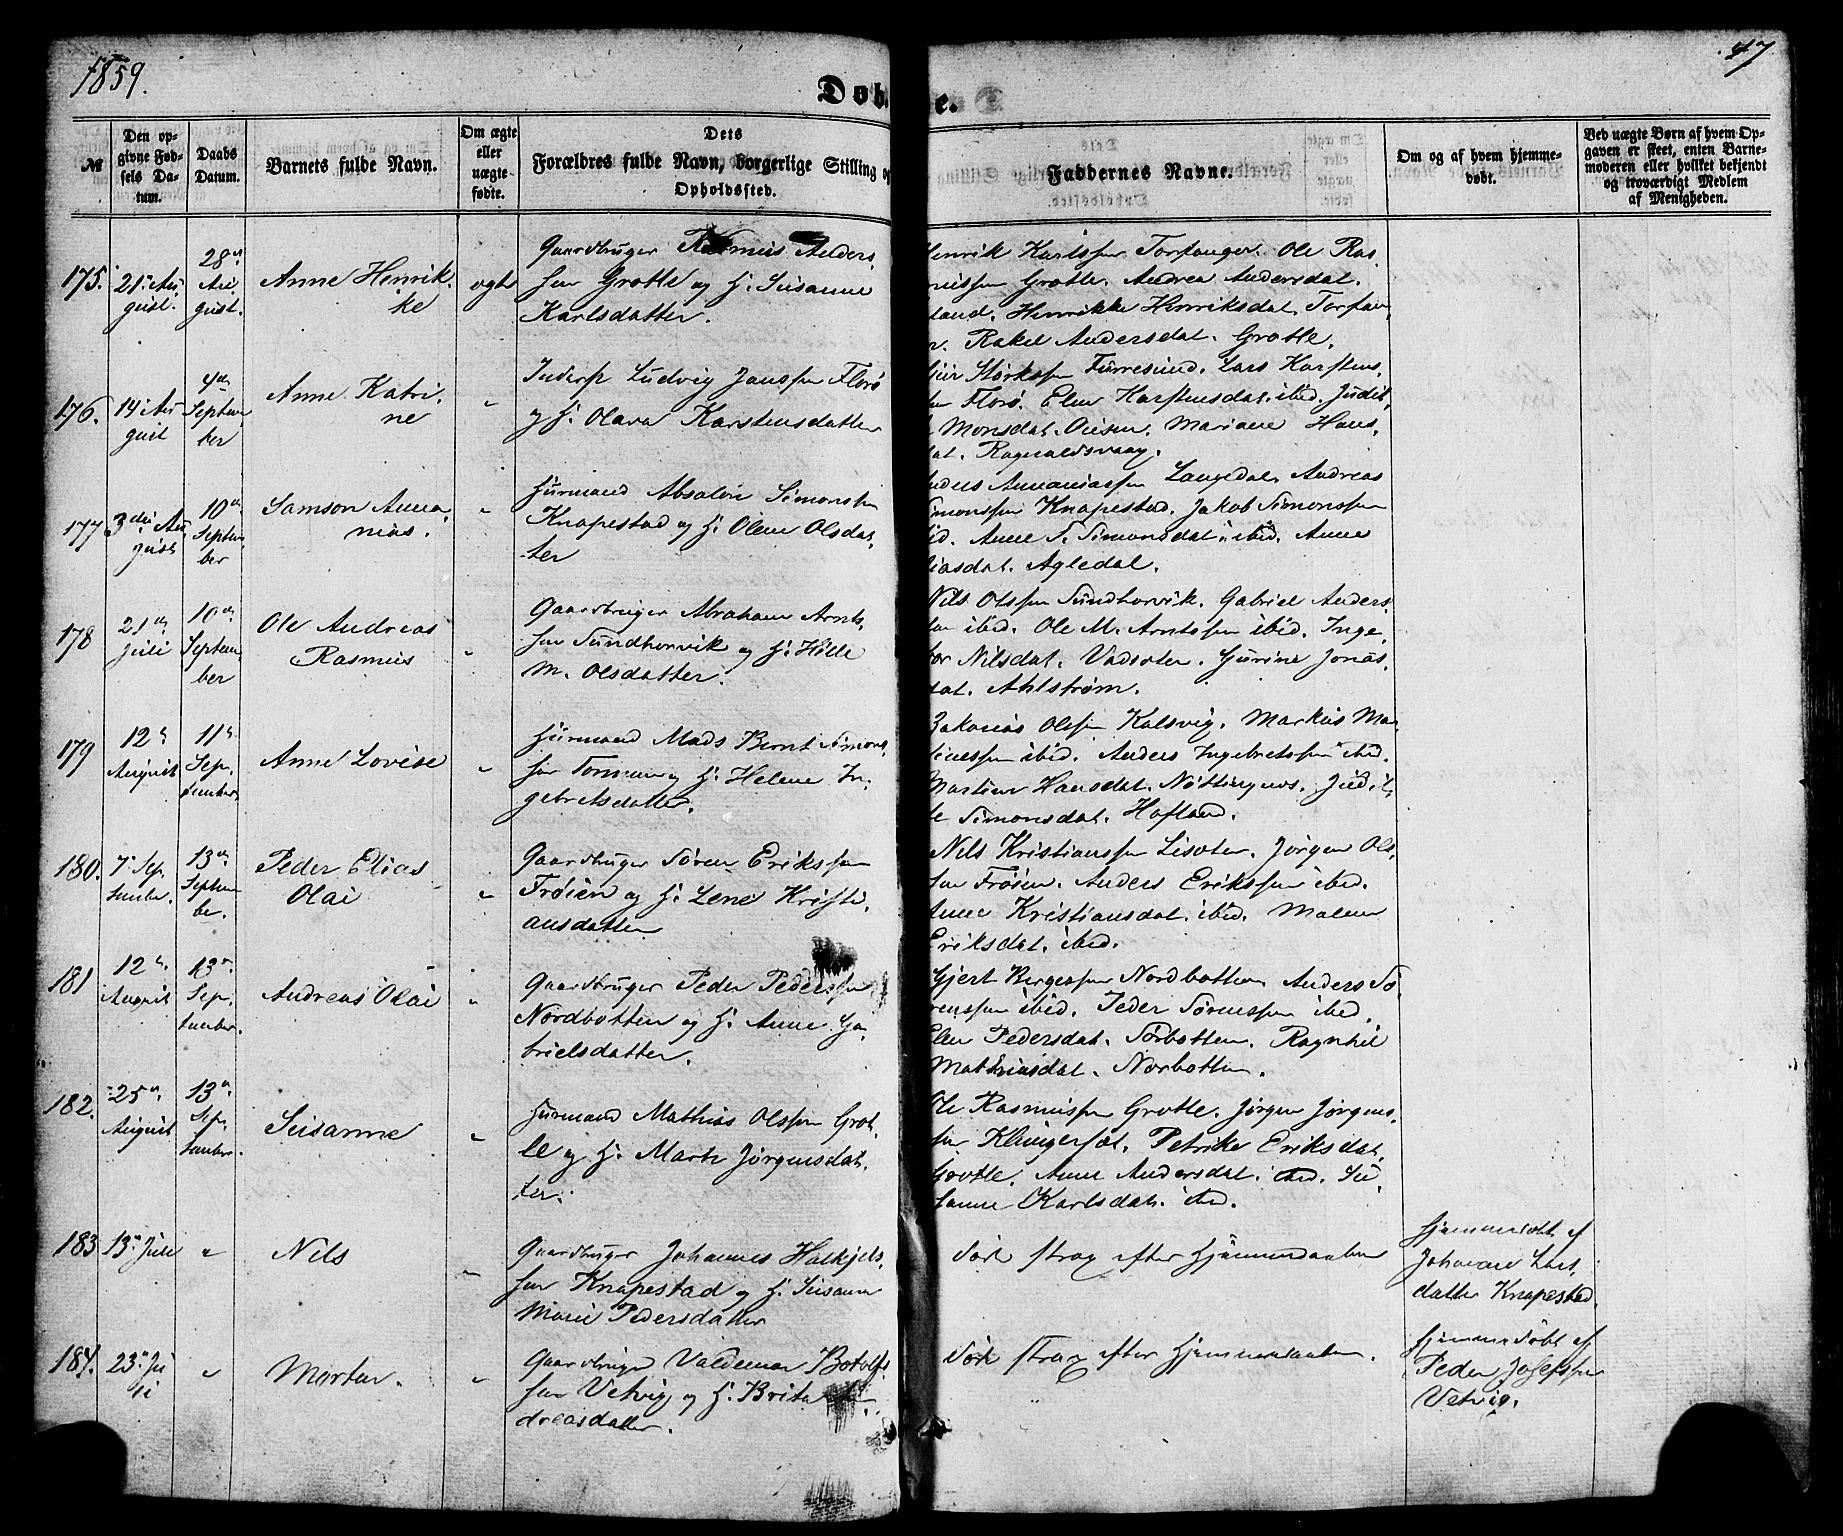 1859.
47
Døb
e.
№
Den op-
givne Fød-
sels Da-
tum.
Daabs
Datum.
Barnets fulde Navn.
Om ægte
eller
uægte
fødte.
Dets
Forældres fulde Navn, borgerlige Stilling og
Opholdssted.
Faddernes Navne.
Om og af hvem hjemme-
døbt.
Ved uægte Børn af hvem Op-
gaven er skeet, enten Barne-
moderen eller hvilket bekjendt
og troværdigt Medlem
af Menigheden.
175.
21de Au
gust.
28de
Au
gust.
Anne Henrik-
ke
ægte
Gaardbruger Rasmus Anders,
søn Grotle og H. Susanne
Karlsdatter.
Henrik Karlssen Torfanger. Ole Ras,
mussen Grotle. Andrea Andersdat.
land. Henrikke Henriksdat. Torfan
Rakel Andersdat. Grotle.
176.
14de Au
gust
4de
Septem
ber
Anne Katri,
ne
"
Inderst Ludvig Janssen Florø
og H. Olava Karstensdatter
Størkssen Furresund. Lars Karstens,
sen Florø. Elen Karstensdat. ibid. Judit
Monsdat. Mariane Hans,
dat. Ragnaldsvaag.
177
3die Au
gust
10de
Septem
ber
Samson Anna,
nias.
"
Huusmand Absalon Simonssen
Knapestad og H. Olene Olsdat,
ter
Ananiassen Langedal. Andreas
Simonssen Knapestad. Jakob Simonssen
ibid. Anne S. Simonsdat. ibid. Anne
liasdat. Agledal.
178
21de
Juli
10de
Septem,
ber
Ole Andreas
Rasmus
"
Gaardbruger Abraham Arnts,
søn Sundhorvik og H. Hille
M. Olsdatter.
Nils Olssen Sundhorvik. Gabriel Anders,
søn ibid. Ole M. Arntssen ibid. Inge,
bor Nilsdat. Vadsøter. Gurine Jonas,
dat. Ahlstrøm.
179
12de
August
11de
Sep,
tember.
Anne Lovise
"
Huusmand Mads Bernt Simons,
søn og H. Helene In,
gebretsdatter.
Zakarias Olssen Kalsvig. Markus Ma,
ibid. Anders Ingebretssen ibid.
Hansdat. Nøttingnes. Judit,
te Simonsdat. Hofland.
180.
7de Sep,
tember.
13de
Septem
ber.
Peder Elias
Olai
"
Gaardbruger Søren Erikssen
Frøien og H. Lene Kristi,
ansdatter
Nils Kristianssen Lisøter. Jørgen Ols,
søn Frøien. Anders Erikssen ibid.
Anne Kristiansdat. ibid. Malene
Eriksdat. ibid.
181
12de
August
13de
Sep,
tember.
Andreas Olai
"
Gaardbruger Peder Pederssen
Nordbotten og H. Anne Ga,
brielsdatter.
Gjert Børgessen Nordbotten. Anders Sø
renssen ibid. Peder Sørenssen ibid.
Elen Pedersdat. Sørbotten. Ragnhil
Mathiasdat. Norbotten.
182.
25de
August
13de
Sep,
tember.
Susanne
"
Huusmand Mathias Olssen Grot,
le og H. Marte Jørgensdat,
ter.
Ole Rasmussen Grotle. Jørgen Jørgens,
søn Klungersæt. Petrike Eriksdat.
Grotle. Anne Andersdat. ibid. Su,
sanne Karlsdat. ibid.
183
13de Juli
"
Nils
"
Gaardbruger Johannes Halkjels,
søn Knapestad og H. Susanne
Marie Pedersdatter
Døde strax efter Hjemmedaaben
Hjemmedøbt af
Johanne Lars,
datter Knapestad.
184.
23de Ju
li
"
Morten.
"
Gaardbruger Valdemar Botolfs
søn Vetvig og H. Brite An
dreasdatter.
Døde strax efter Hjemmedaaben.
Hjemmedøbt af
Peder Josefssen
Vetvig.